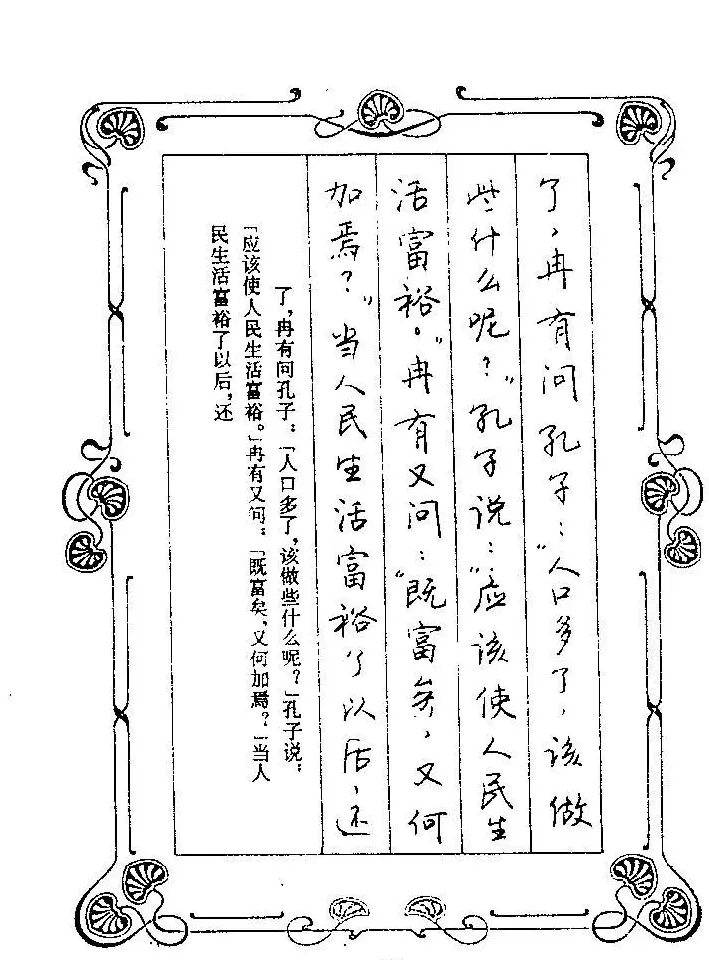 了，冉有问孔子：“人口多了，该做
些什么呢？”孔子说：“应该使人民生
活富裕。”冉有又问：“既富矣，又何
加焉？”当人民生活富裕了以后，还
了，冉有问孔子：「人口多了，该做些什么呢？」孔子说：
「应该使人民生活富裕。」冉有又问：「既富矣，又何加焉？」当人
民生活富裕了以后，还